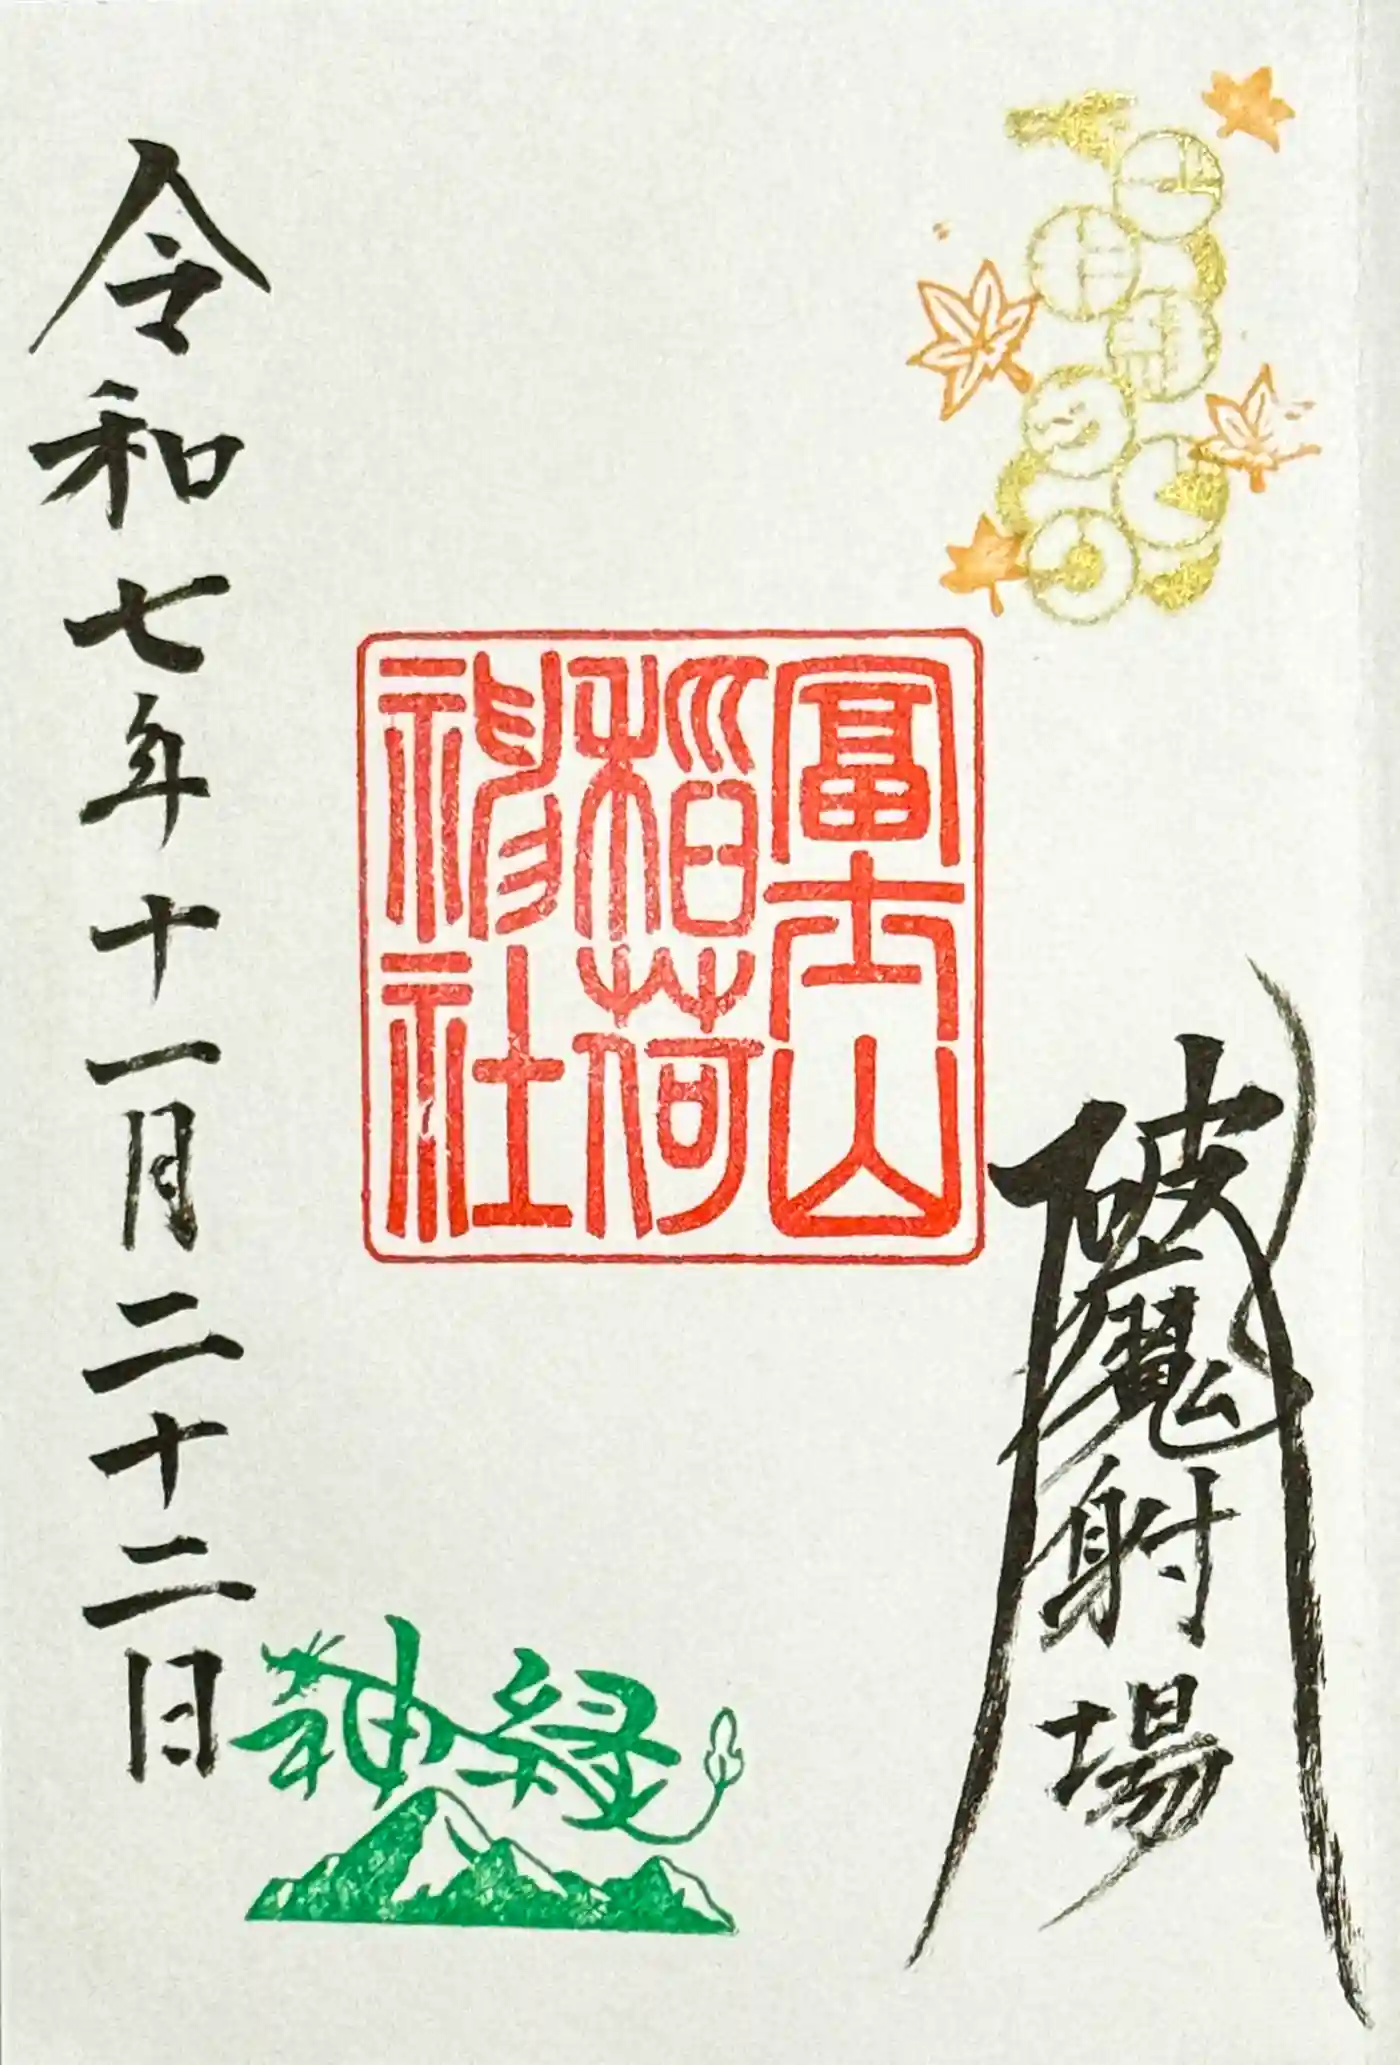 破魔射場
冨士山
稲荷
神社
令和七年十一月二十二日
神縁